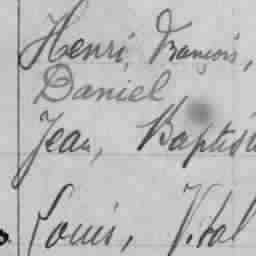 Henri, François,
Daniel
Jean, Baptis
Louis, Vital